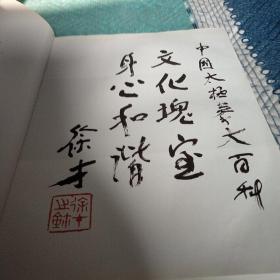 中国太极拳大百科
文化瑰宝
身心和谐
徐才
徐才之钵